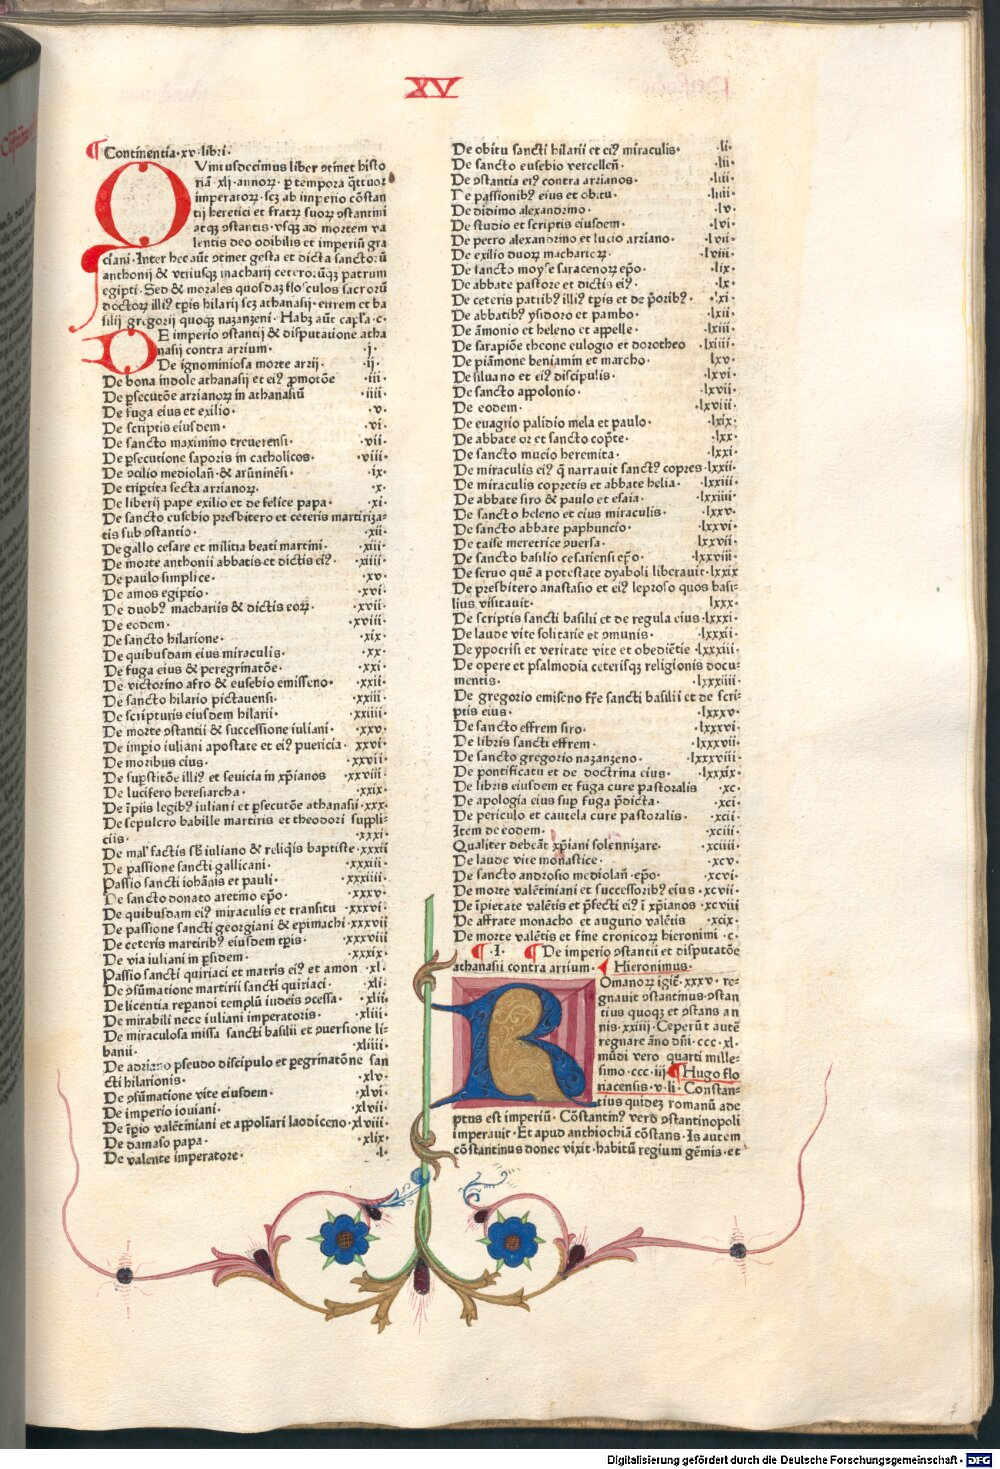 XV
¶ Continentia·xv·libri·
QVintusdecimus liber ꝯtinet histo
riā·xli·annoꝝ· ꝑ tempora q̄ttuor
imperatoꝝ·scꝫ ab imperio cōstan
tij heretici et fratrꝫ suoꝝ ꝯstantini
atqꝫ ꝯstantis·vsqꝫ ad mortem va
lentis deo odibilis et imperiū gra
ciani·Inter hec aūt ꝯtinet gesta et dicta sanctoꝝ
anthonij & vtriusqꝫ macharij ceteroꝝūqꝫ patrum
egipti·Sed & morales quosdaꝫ flosculos sacroꝝū
doctoꝝ illiꝰ tꝑis hilarij scꝫ athanasij·effrem et ba
silij gregorij quoqꝫ nazanzeni·Habꝫ aūt capl'a·c·
DE imperio ꝯstantij & disputatione atha
nasij contra arrium· ·j·
De ignominiosa morte arrij· ·ij·
De bona indole athanasij et eiꝰ ꝓmotōe ·iii·
De ꝑsecutōe arrianoꝝ in athanasiū ·iiii·
De fuga eius et exilio· ·v·
De scriptis eiusdem· ·vi·
De sancto maximino treuerensi· ·vii·
De ꝑsecutione saporis in catholicos· ·viii·
De ꝯcilio mediolan̄·& arūninēsi· ·ix·
De triptita secta arrianoꝝ· ·x·
De liberij pape exilio et de felice papa· ·xi·
De sancto eusebio presbitero et ceteris martiriza=
tis sub ꝯstantio· ·xii·
De gallo cesare et militia beati martini· ·xiii·
De morte anthonii abbatis et dictis eiꝰ· ·xiiii·
De paulo simplice· ·xv·
De amos egiptio· ·xvi·
De duobꝰ machariis & dictis eoꝝ· ·xvii·
De eodem· ·xviii·
De sancto hilarione· ·xix·
De quibusdam eius miraculis· ·xx·
De fuga eius & peregrinatōe· ·xxi·
De victorino afro & eusebio emisseno· ·xxii·
De sancto hilario pictauensi· ·xxiii·
De scripturis eiusdem hilarii· ·xxiiii·
De morte ꝯstantii & successione iuliani· ·xxv·
De imꝑio iuliani apostate et eiꝰ puericia· xxvi·
De moribus eius· ·xxvii·
De suꝑstitōe illiꝰ et seuicia in xp̄ianos ·xxviii·
De lucifero heresiarcha· ·xxix·
De īpiis legibꝰ iuliani et ꝑsecutōe athanasii·xxx·
De sepulcro babille martiris et theodori suppli-
ciis· ·xxxi·
De mal'factis sb̄ iuliano & reliq̄is baptiste·xxxii
De passione sancti gallicani· ·xxxiii·
Passio sancti iohānis et pauli· ·xxxiiii·
De sancto donato aretino ep̄o· ·xxxv·
De quibusdam eiꝰ miraculis et transitu ·xxxvi·
De passione sancti georgiani & epimachi·xxxvii
De ceteris martiribꝰ eiusdem tꝑis· ·xxxviii
De via iuliani in ꝑsidem· ·xxxix·
Passio sancti quiriaci et matris eiꝰ et amon ·xl·
De ꝯsūmatione martirii sancti quiriaci· ·xli·
De licentia repandi templū iudeis ꝯcessa· ·xlii
De mirabili nece iuliani imperatoris· ·xliii
De miraculosa missa sancti basilii et ꝯuersione li-
banii· ·xliiii·
De adriano pseudo discipulo et ꝑegrinatōne san
cti hilarionis· ·xlv·
De ꝯsūmatione vite eiusdem· ·xlvi·
De imperio iouiani· ·xlvii·
De īꝑio valētiniani et appoliari laodiceno·xlviii·
De damaso papa· ·xlix·
De valente imperatore· ·l·
De obitu sancti hilarii et eiꝰ miraculis· ·li·
De sancto eusebio vercellen̄· ·lii·
De ꝯstantia eiꝰ contra arrianos· ·liii·
De passionibꝰ eius et obitu· ·liiii·
De didimo alexandrino· ·lv·
De studio et scriptis eiusdem· ·lvi·
De petro alexandrino et lucio arriano· ·lvii·
De exilio duoꝝ macharioꝝ· ·lviii·
De sancto moyse saracenoꝝ ep̄o· ·lix·
De abbate pastore et dictis eiꝰ· ·lx·
De ceteris patribꝰ illiꝰ tꝑis et de p̄oribꝰ· ·lxi·
De abbatibꝰ ysidoro et pambo· ·lxii·
De āmonio et heleno et appelle· ·lxiii·
De sarapiōe theone eulogio et dorotheo ·lxiiii·
De piāmone beniamin et marcho· ·lxv·
De siluano et eiꝰ discipulis· ·lxvi·
De sancto appolonio· ·lxvii·
De eodem· ·lxviii·
De euagrio palidio mela et paulo· ·lxix·
De abbate or et sancto cop̄te· ·lxx·
De sancto mucio heremita· ·lxxi·
De miraculis eiꝰ q̄ narrauit sanctꝰ copres·lxxii·
De miraculis copretis et abbate helia· ·lxxiii·
De abbate siro & paulo et esaia· ·lxxiiii·
De sancto heleno et eius miraculis· ·lxxv·
De sancto abbate paphuncio· ·lxxvi·
De taise meretrice ꝯuersa· ·lxxvii·
De sancto basilio cesariensi ep̄o· ·lxxviii·
De seruo quē a potestate dyaboli liberauit·lxxix
De presbitero anastasio et eiꝰ leproso quos basi-
lius visitauit· lxxx·
De scriptis sancti basilii et de regula eius·lxxxi·
De laude vite solitarie et ꝯmunis· ·lxxxii·
De ypocrisi et veritate vite et obediētie·lxxxiii·
De opere et psalmodia ceterisqꝫ religionis docu-
mentis· ·lxxxiiii·
De gregorio emiseno fr̄e sancti basilii et de scri-
ptis eius· ·lxxxv·
De sancto effrem siro· ·lxxxvi·
De libris sancti effrem· ·lxxxvii·
De sancto gregorio nazanzeno· ·lxxxviii·
De pontificatu et de doctrina eius· ·lxxxix·
De libris eiusdem et fuga cure pastoralis ·xc·
De apologia eius suꝑ fuga p̄dicta· ·xci·
De periculo et cautela cure pastoralis· ·xcii·
Item de eodem· ·xciii·
Qualiter debeāt xp̄iani solennizare· ·xciiii·
De laude vite monastice· ·xcv·
De sancto ambrosio mediolan̄·ep̄o· ·xcvi·
De morte valētiniani et successoribꝰ eius·xcvii·
De īpietate valētis et ꝑfecti eiꝰ ī xp̄ianos ·xcviii
De affrate monacho et augurio valētis ·xcix·
De morte valētis et fine cronicoꝝ hieronimi ·c·
¶·I· ¶De imperio ꝯstantii et disputatōe
athanasii contra arrium·¶ Hieronimus·
ROmanoꝝ igit̄·xxxv·re-
gnauit ꝯstantinus·ꝯstan
tius quoqꝫ et ꝯstans an
nis·xxiiij·Ceperūt autē
regnare āno dn̄i·ccc·xl·
mūdi vero quarti mille-
simo·ccc·iij¶Hugo flo
riacensis·v·li·Constan-
tius quideꝫ romanū ade
ptus est imperiū·Cōstantinꝰ verō ꝯstantinopoli
imperauit·Et apud anthiochiā cōstans·Is autem
cōstantinus donec vixit·habitū regium gēmis·et
Digitalisierung gefördert durch die Deutsche Forschungsgemeinschaft - DFG